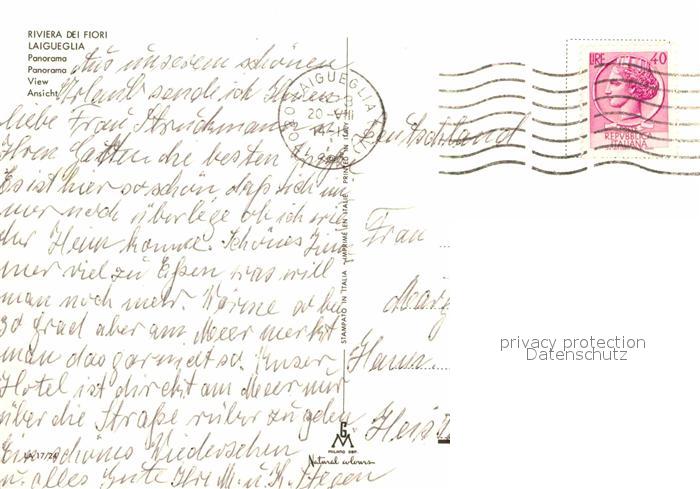 RIVIERA DEI FIORI
LAIGUEGLIA
Panorama
Panorama
View
Ansicht
Aus unserem schönen
Urlaub sende ich Ihnen
liebe Frau Struckmann
Ihren Gatten die besten Grüße
Es ist hier so schön daß ich im
mer noch überlege ob ich wie
der Heim komme. Schönes Zim
mer viel zu Eßen was will
man noch mehr. Wärme
30 Grad aber am Meer merkt
man das gar nicht so. Unser
Hotel ist direkt am Meer nur
über die Straße rüber zu gehen
Ein schönes Wiedersehen
u. alles Gute Ihre M. u. K.
17/74
STAMPATO IN ITALIA - IMPRIMÉ EN ITALIE - PRINTED IN ITALY
GM
MILANO DEP.
Natural colours
LAIGUEGLIA
20-VIII
LIRE 40
REPVBBLICA
ITALIANA
Deutschland
Frau
privacy protection
Datenschutz